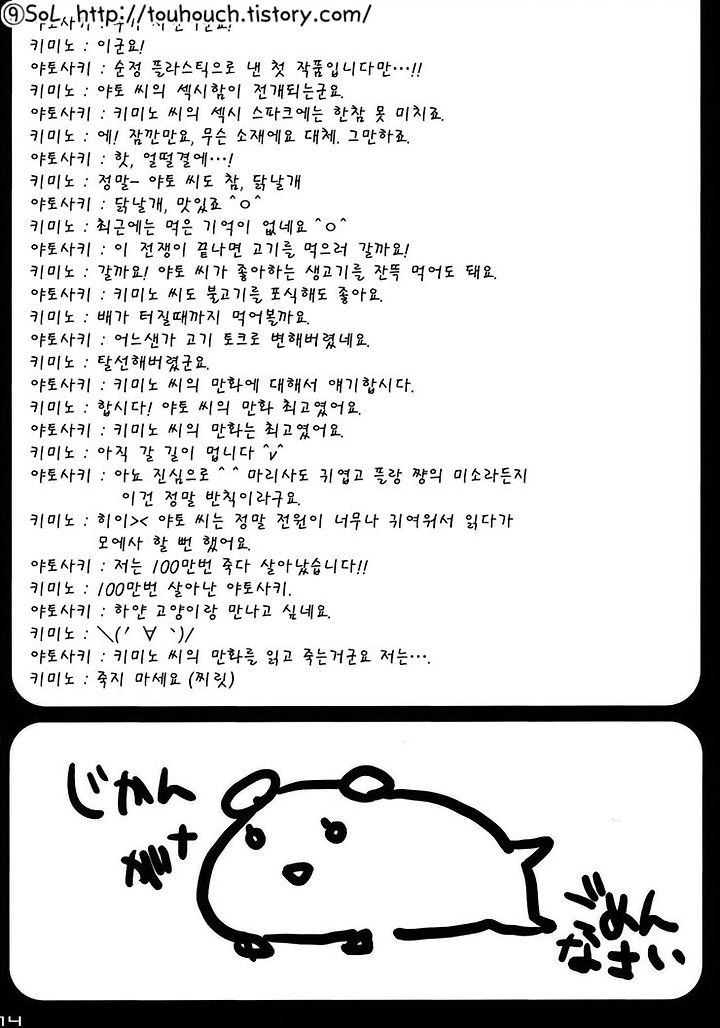 ⑨SoL. http://touhouch.tistory.com/
키미노 : 이군요!
야토사키 : 순정 플라스틱으로 낸 첫 작품입니다만…!!
키미노 : 야토 씨의 섹시함이 전개되는군요.
야토사키 : 키미노 씨의 섹시 스파크에는 한참 못 미치죠.
키미노 : 에! 잠깐만요, 무슨 소재에요 대체. 그만하죠.
야토사키 : 핫, 얼떨결에…!
키미노 : 정말- 야토 씨도 참, 닭날개
야토사키 : 닭날개, 맛있죠 ^ㅇ^
키미노 : 최근에는 먹은 기억이 없네요 ^ㅇ^
야토사키 : 이 전쟁이 끝나면 고기를 먹으러 갈까요!
키미노 : 갈까요! 야토 씨가 좋아하는 생고기를 잔뜩 먹어도 돼요.
야토사키 : 키미노 씨도 불고기를 포식해도 좋아요.
키미노 : 배가 터질때까지 먹어볼까요.
야토사키 : 어느샌가 고기 토크로 변해버렸네요.
키미노 : 탈선해버렸군요.
야토사키 : 키미노 씨의 만화에 대해서 얘기합시다.
키미노 : 합시다! 야토 씨의 만화 최고였어요.
야토사키 : 키미노 씨의 만화는 최고였어요.
키미노 : 아직 갈 길이 멉니다 ^v^
야토사키 : 아뇨 진심으로 ^ ^ 마리사도 귀엽고 플랑 쨩의 미소라든지
이건 정말 반칙이라구요.
키미노 : 히이>< 야토 씨는 정말 전원이 너무나 귀여워서 읽다가
모에사 할 뻔 했어요.
야토사키 : 저는 100만번 죽다 살아났습니다!!
키미노 : 100만번 살아난 야토사키.
야토사키 : 하얀 고양이랑 만나고 싶네요.
키미노 : \(′ ∀ ‵)/
야토사키 : 키미노 씨의 만화를 읽고 죽는거군요 저는….
키미노 : 죽지 마세요 (찌릿)
じかん
ごめん
なさい
14